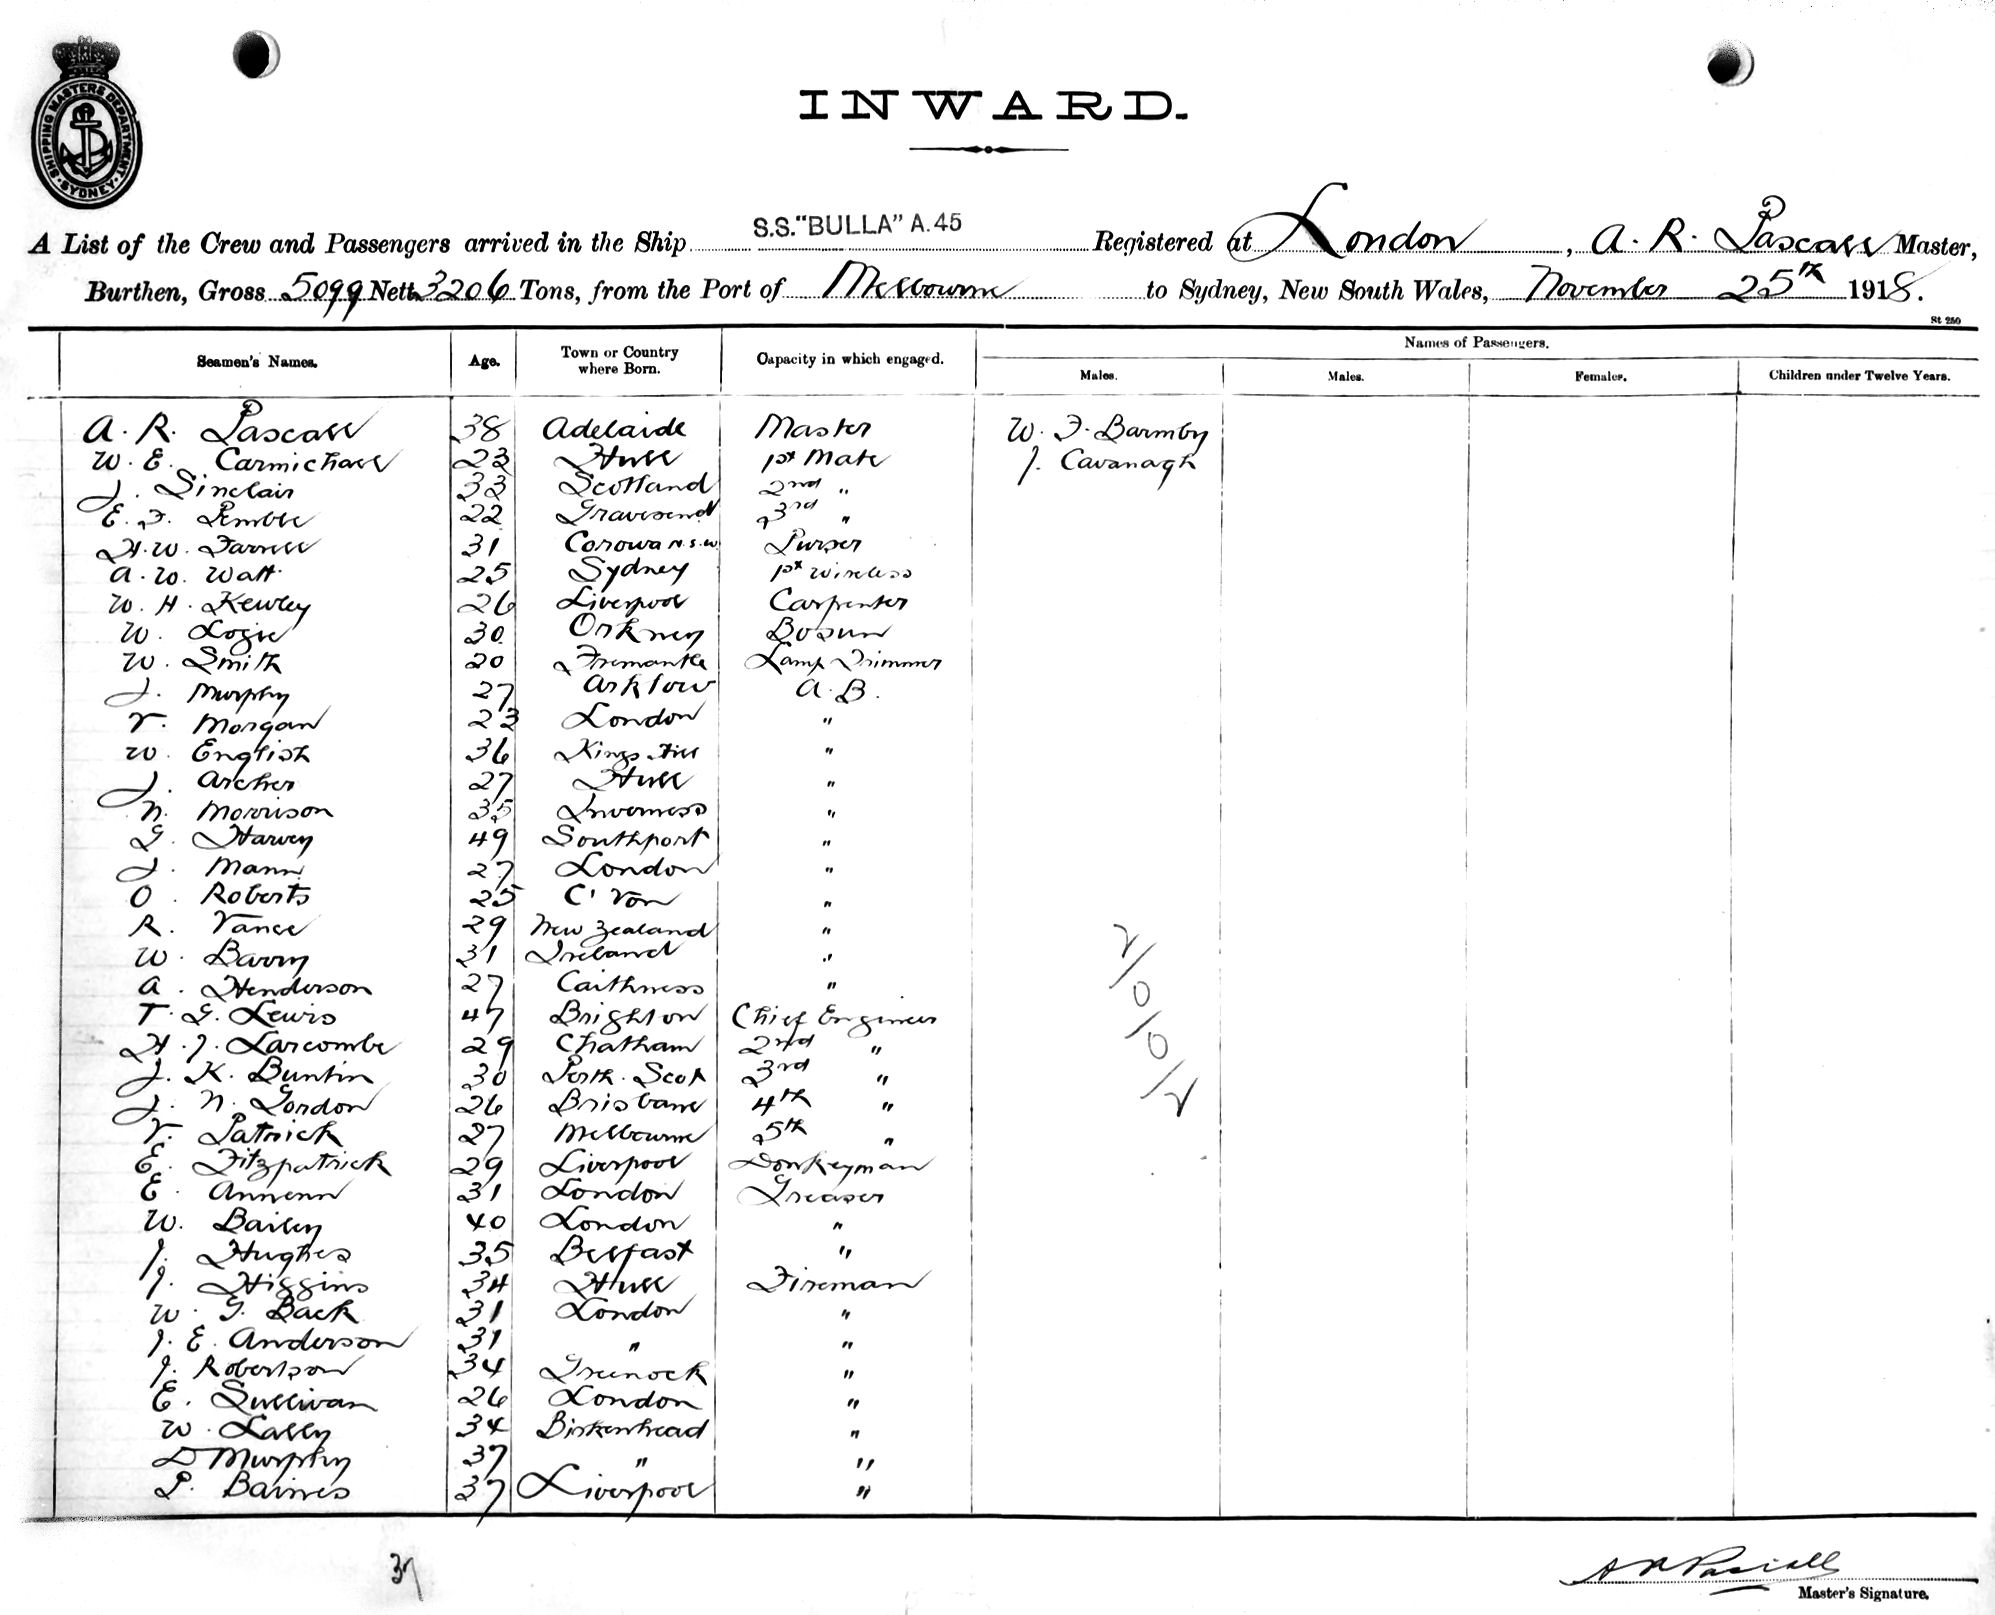 SHIPPING MASTERS DEPARTMENT
SYDNEY
INWARD.
A List of the Crew and Passengers arrived in the Ship S.S. "BULLA" A.45 Registered at London, A. R. Pascall Master,
Burthen, Gross 5099 Nett 3206 Tons, from the Port of Melbourne to Sydney, New South Wales, November 25th 1918.
St 250
Seamen's Names. Age. Town or Country where Born. Capacity in which engaged. Names of Passengers.
Males. Males. Females. Children under Twelve Years.
A. R. Pascall 38 Adelaide Master W. F. Barmby
W. E. Carmichael 23 Hull 1st Mate J. Cavanagh
J. Sinclair 33 Scotland 2nd "
E. F. Pemble 22 Gravesend 3rd "
H. W. Farnell 31 Corowa N.S.W. Purser
A. W. Watt 25 Sydney 1st Wireless
W. H. Kewley 26 Liverpool Carpenter
W. Logie 30 Orkney Bosun
W. Smith 20 Fremantle Lamp Trimmer
J. Murphy 27 Arklow A. B.
V. Morgan 23 London "
W. English 36 Kings Hill "
J. Archer 27 Hull "
N. Morrison 35 Inverness "
G. Harvey 49 Southport "
J. Mann 27 London "
O. Roberts 25 C' Von "
R. Vance 29 New Zealand "
W. Barry 31 Ireland "
A. Henderson 27 Caithness "
T. G. Lewis 47 Brighton Chief Engineer
H. J. Larcombe 29 Chatham 2nd "
J. K. Buntin 30 Perth. Scot 3rd "
J. N. Gordon 26 Brisbane 4th "
V. Patrick 27 Melbourne 5th "
E. Fitzpatrick 29 Liverpool Donkeyman
E. Annenn 31 London Greaser
W. Bailey 40 London "
J. Hughes 35 Belfast "
J. Higgins 34 Hull Fireman
W. G. Back 31 London "
J. E. Anderson 31 " "
J. Robertson 34 Greenock "
E. Sullivan 26 London "
W. Lally 34 Birkenhead "
D Murphy 37 " "
P. Baines 37 Liverpool "
2/0/0/2
37
A R Pascall
Master's Signature.